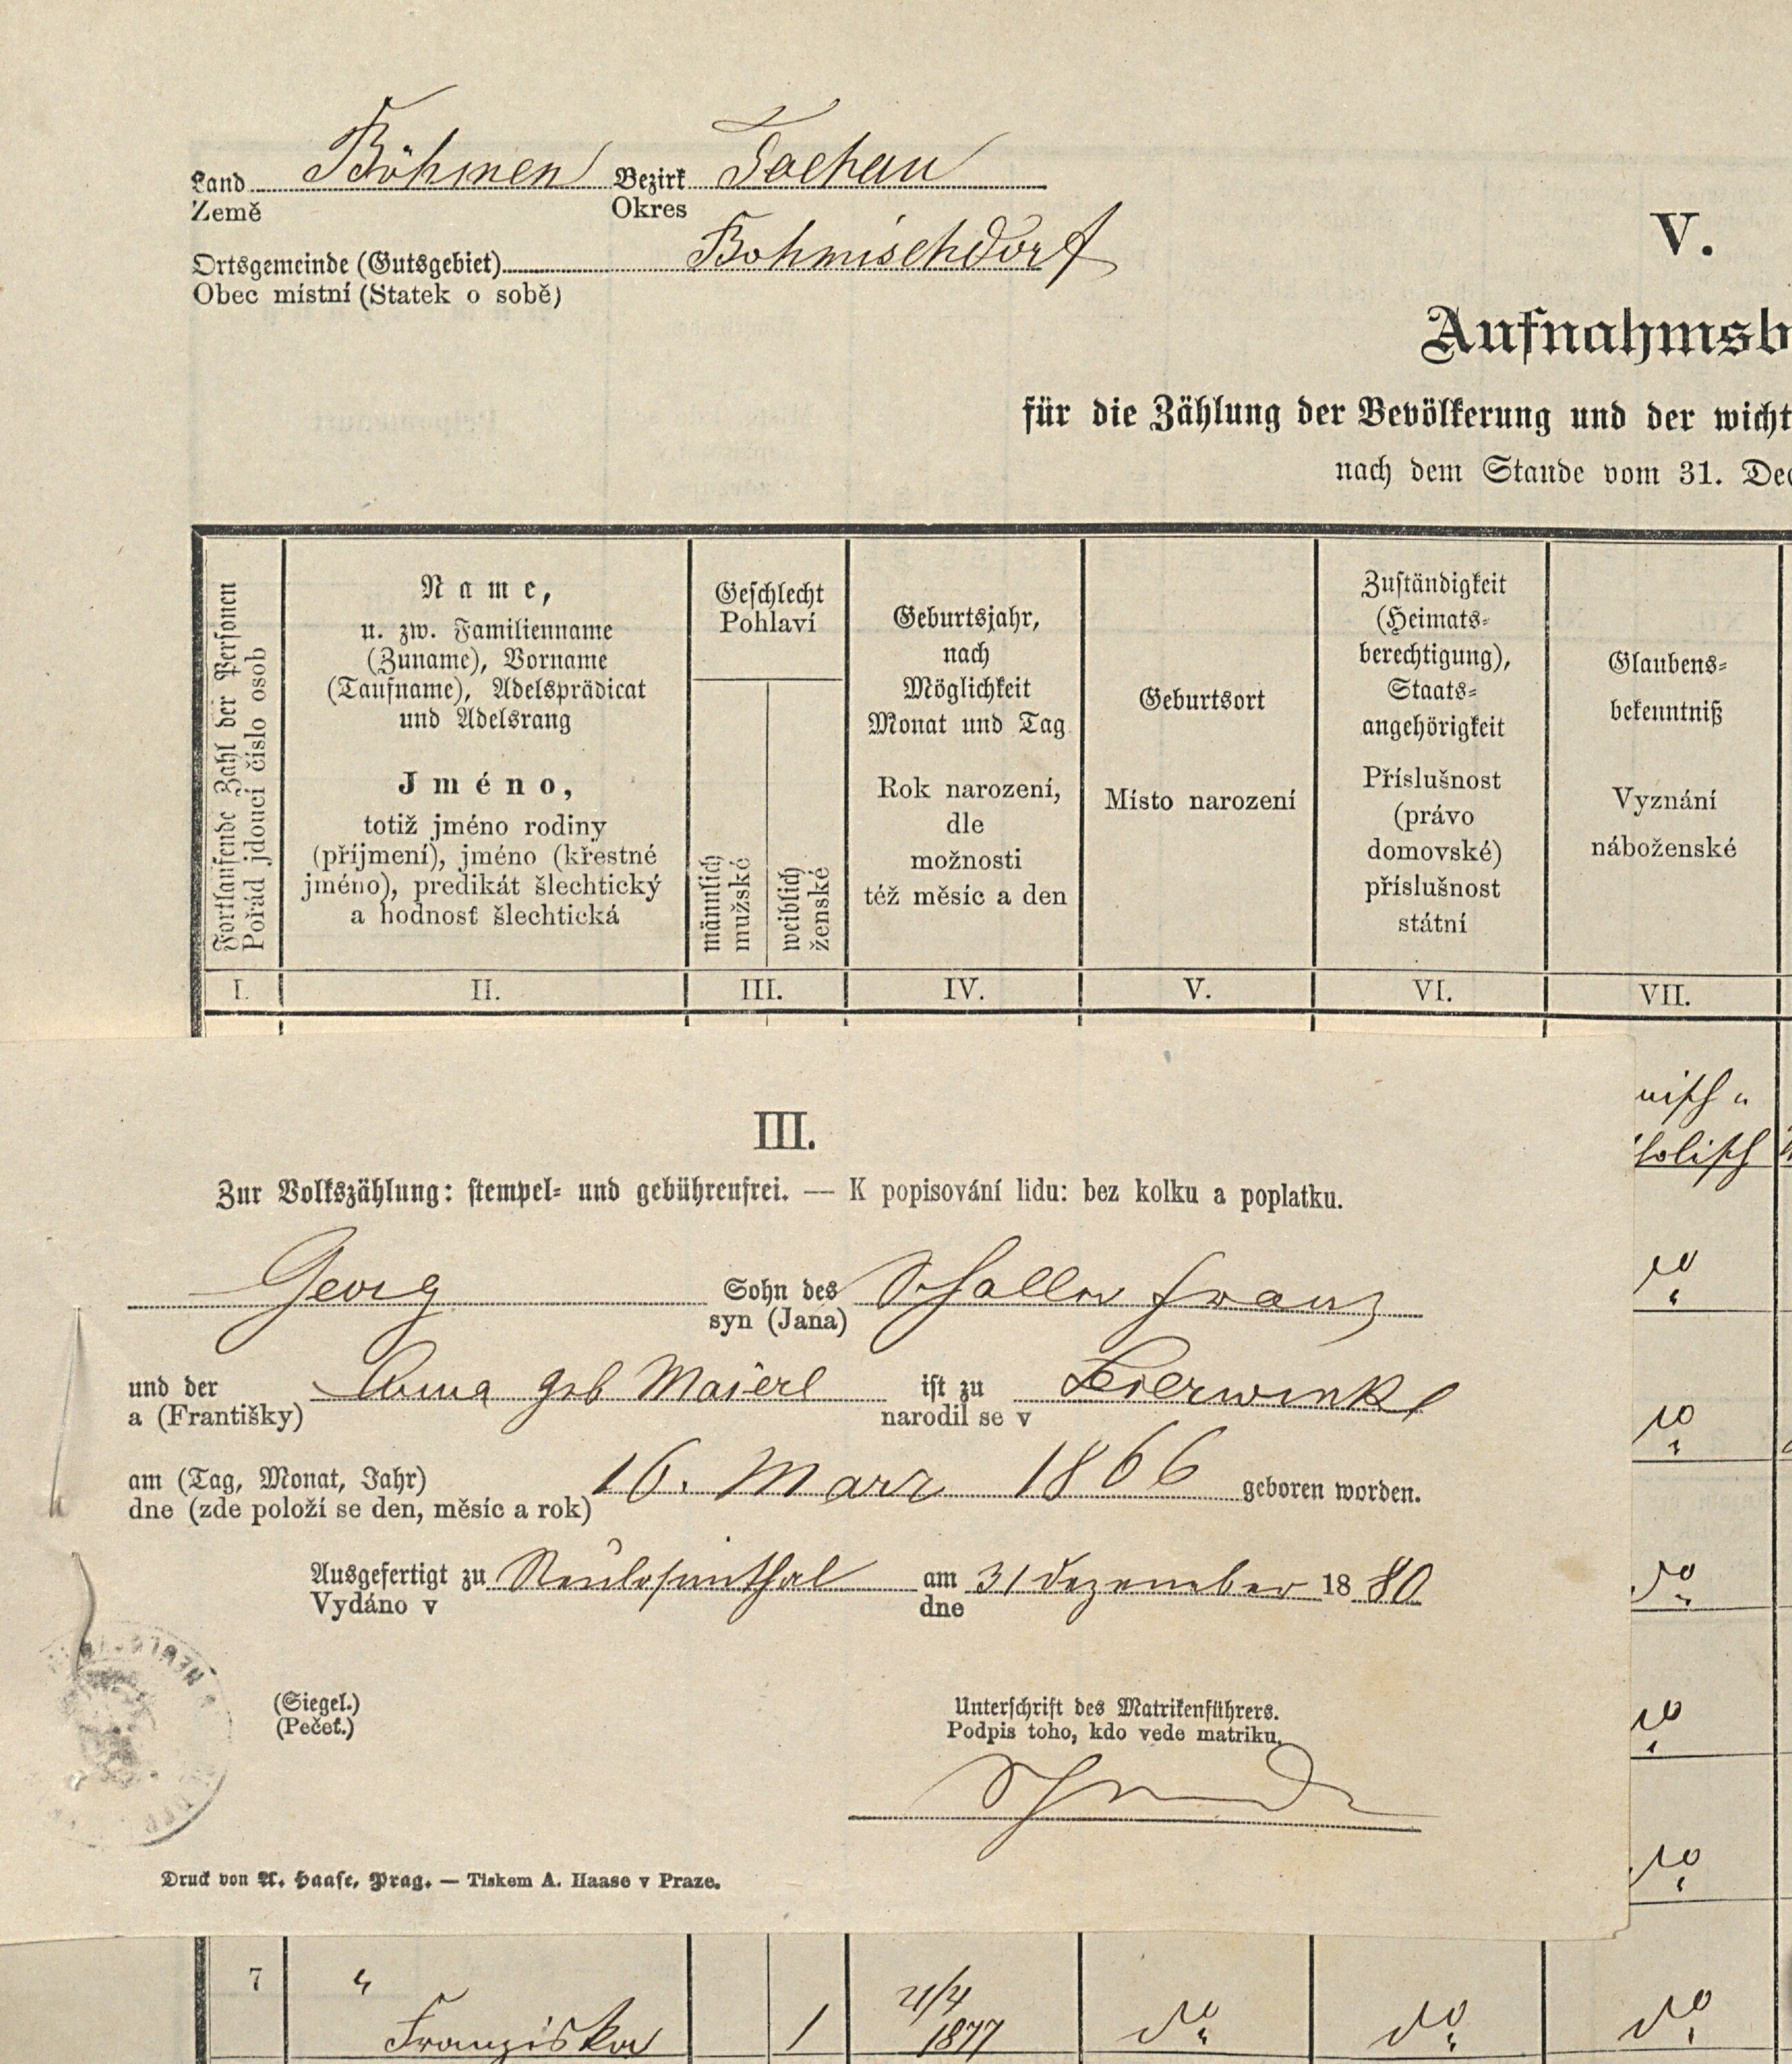 Land Böhmen Bezirk Tachau
Země Okres
Ortsgemeinde (Gutsgebiet) Böhmischdorf
Obec místní (Statek o sobě)
V.
Aufnahmsb
für die Zählung der Bevölkerung und der wicht
nach dem Stande vom 31. Dec
Fortlaufende Zahl der Personen
Pořád jdoucí číslo osob
Name,
u. zw. Familienname
(Zuname), Vorname
(Taufname), Adelsprädicat
und Adelsrang
Jméno,
totiž jméno rodiny
(příjmení), jméno (křestné
jméno), predikát šlechtický
a hodnosť šlechtická
Geschlecht
Pohlaví
männlich
mužské
weiblich
ženské
Geburtsjahr,
nach
Möglichkeit
Monat und Tag
Rok narození,
dle
možnosti
též měsíc a den
Geburtsort
Místo narození
Zuständigkeit
(Heimats-
berechtigung),
Staats-
angehörigkeit
Příslušnost
(právo
domovské)
příslušnost
státní
Glaubens-
bekenntniß
Vyznání
náboženské
I. II. III. IV. V. VI. VII.
nisch "
holisch
do
do
do
do
do
III.
Zur Volkszählung: stempel- und gebührenfrei. — K popisování lidu: bez kolku a poplatku.
Georg Sohn des Schaller Franz
syn (Jana)
und der Anna geb Maierl ist zu Beierwinkl
a (Františky) narodil se v
am (Tag, Monat, Jahr) 16. März 1866 geboren worden.
dne (zde položí se den, měsíc a rok)
Ausgefertigt zu Neulosimthal am 31 Dezember 1880
Vydáno v dne
(Siegel.)
(Pečeť.)
Unterschrift des Matrikenführers.
Podpis toho, kdo vede matriku.
Druck von A. Haase, Prag. — Tiskem A. Haase v Praze.
7 "
Franziska 1 21/4 1877 do do do